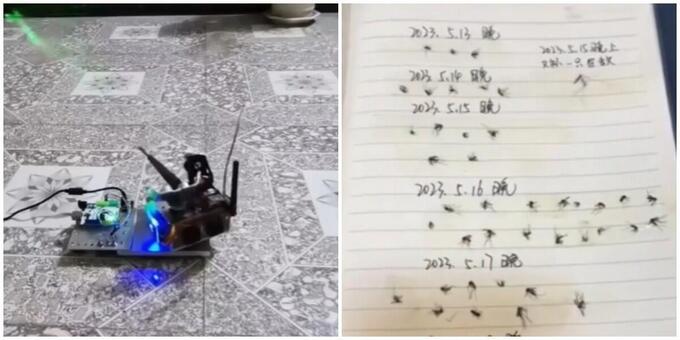 2023. 5.13 晚
2023. 5.14 晚
2023. 5.15 晚
2023.5.15晚上
2023. 5.16 晚
2023. 5.17 晚